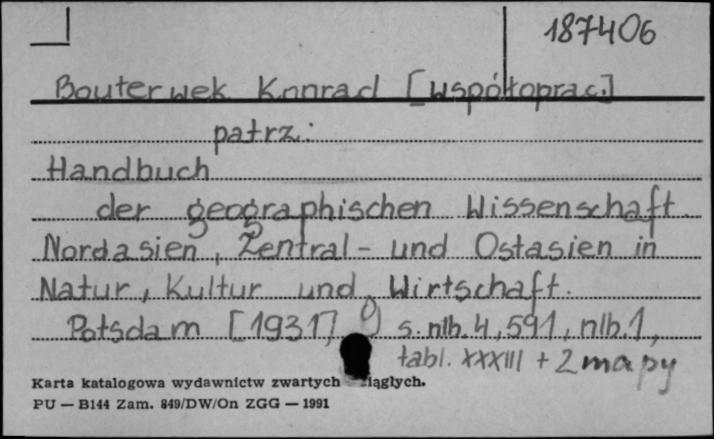 187406
Bouterwek Konrad [współoprac.]
patrz:
Handbuch
der geographischen Wissenschaft.
Nordasien, Zentral- und Ostasien in
Natur, Kultur und Wirtschaft.
Potsdam [1931] s. nlb. 4, 591, nlb. 1,
tabl. XXXIII + 2 mapy
Karta katalogowa wydawnictw zwartych
PU — B144 Zam. 849/DW/On ZGG — 1991